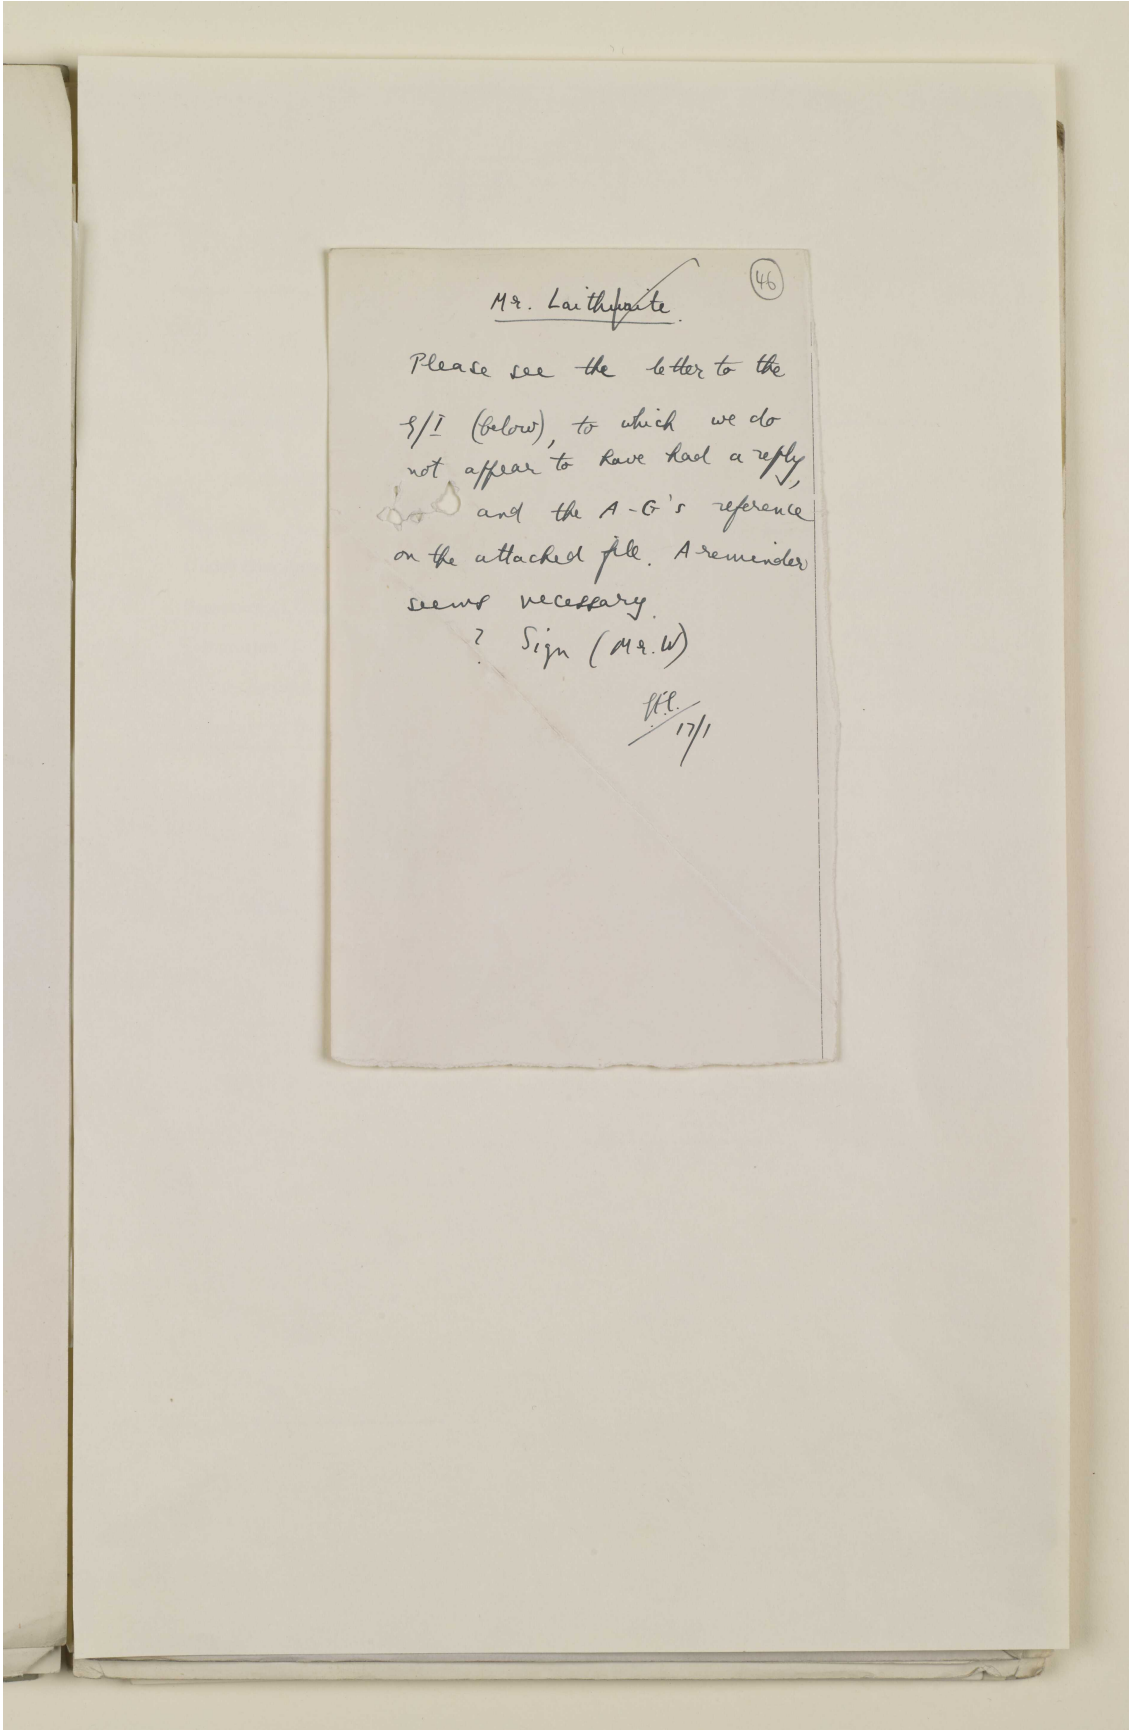 46
Mr. Laithwaite.
Please see the letter to the
G/I (below), to which we do
not appear to have had a reply,
and the A-G's reference
on the attached file. A reminder
seems necessary.
? Sign (Mr. W)
17/1